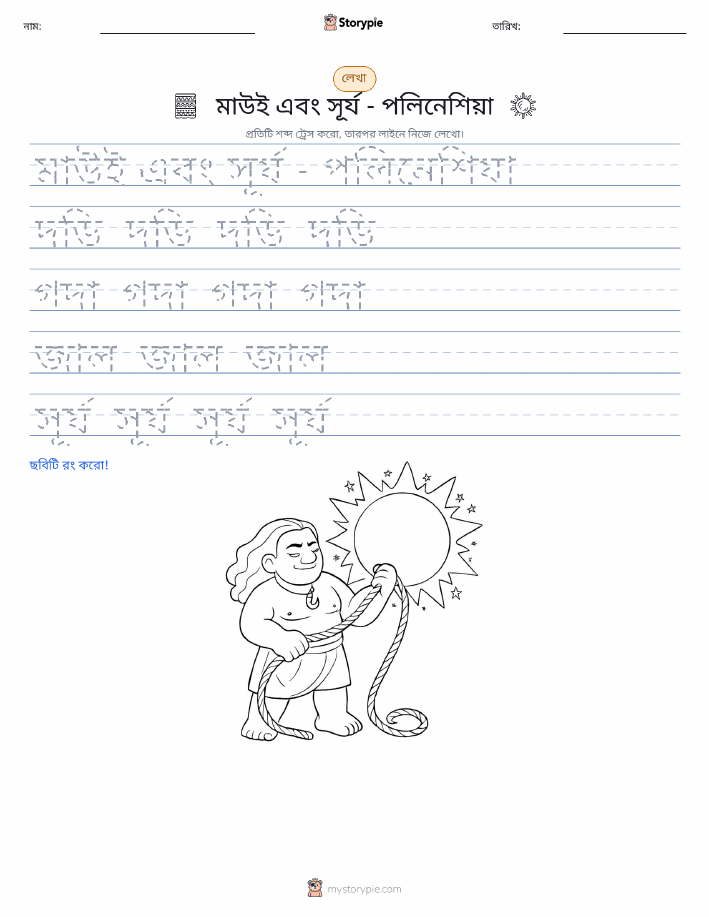 নাম:
Storypie
তারিখ:
লেখা
মাউই এবং সূর্য - পলিনেশিয়া
প্রতিটি শব্দ ট্রেস করো, তারপর লাইনে নিজে লেখো।
মাউই এবং সূর্য - পলিনেশিয়া
দড়ি দড়ি দড়ি দড়ি
গদা গদা গদা গদা
জাল জাল জাল
সূর্য সূর্য সূর্য সূর্য
ছবিটি রং করো!
mystorypie.com